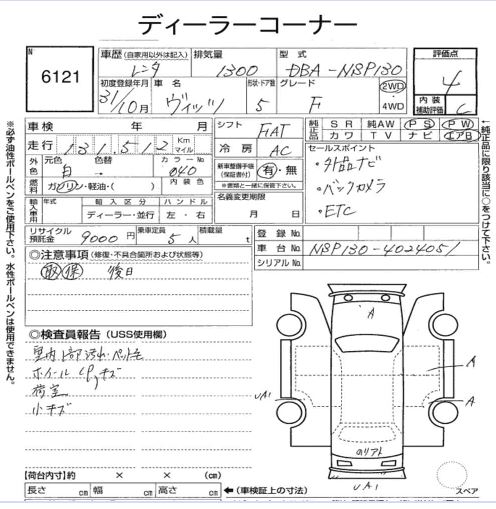 ディーラーコーナー
No 6121
車歴(自家用以外は記入) 排気量 型式 評価点
レンタ 1300 DBA-NSP130 4
初度登録年月 車名 形状・ドア数 グレード 2WD 4WD 内装補助評価 C
31/10月 ヴィッツ 5 F
車検 年 月 シフト FAT 純正品 SR 純AW PS PW
走行 131,512 Km マイル 冷房 AC カワ TV ナビ エアB
外色 元色 色替 カラーNo. セールスポイント
白 → 040 新車整備手帳(保証書付) 有・無 ・外品ナビ
燃料 ガソリン・軽油・( ) 内装色 ※書類と一緒に保管下さい。 ・バックカメラ
輸入車用 年式 輸入区分 ハンドル 名義変更期限 ・ETC
ディーラー・並行 左・右 月 日
リサイクル預託金 9000円 乗車定員 5人 積載量 t 登録No.
◎注意事項(修復・不具合箇所および状態等) 車台No. NSP130-4024051
取 保 後日 シリアルNo.
◎検査員報告(USS使用欄)
室内
ホイール キズ
荷室
小キズ
A
A
A
UA1
のリアト
UA1
スペア
【荷台内寸】 × × (cm)
長さ cm 幅 cm 高さ cm ←(車検証上の寸法)
※必ず油性ボールペンをご使用下さい。水性ボールペンは使用できません。
←純正品に限り該当に○をつけて下さい。